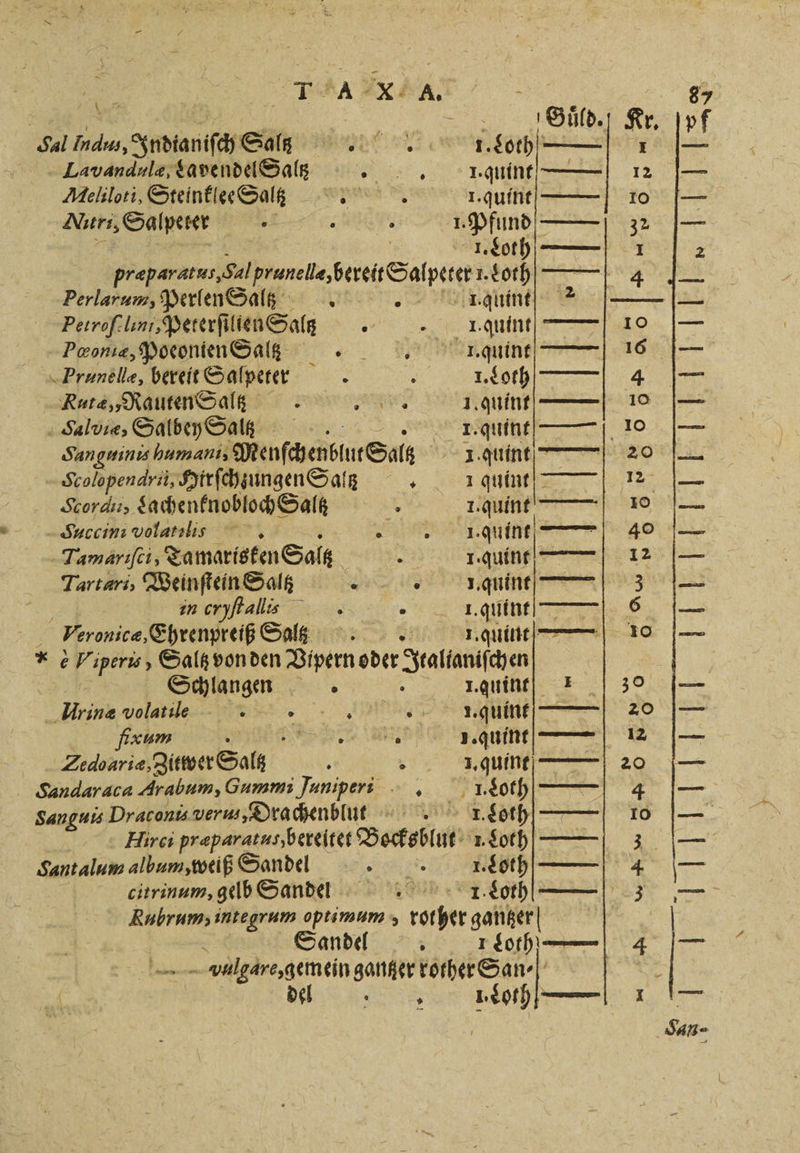 T A X A. 87
Gůld. Kr. pf
Sal Indus, Jndianisch Saltz . . 1.Loth — 1 —
Lavandulæ, LavendelSaltz . . 1.quint — 12 —
Meliloti, SteinkleeSaltz . . 1.quint — 10 —
Nitri, Salpeter . . . 1.Pfund — 32 —
1.Loth — 1 2
præparatus, Sal prunellæ, bereitSalpeter 1.Loth — 4 —
Perlarum, PerlenSaltz . . 1.quint 2 — —
Petrosilini, PetersilienSaltz . . 1.quint — 10 —
Pœoniæ, PoeonienSaltz . . 1.quint — 16 —
Prunellæ, bereit Salpeter . . 1.Loth — 4 —
Rutæ,, RautenSaltz . . . 1.quint — 10 —
Salviæ, SalbeySaltz . . 1.quint — 10 —
Sanguinis humani, MenschenblutSaltz 1.quint — 20 —
Scolopendrii, HirschzungenSaltz . 1 quint — 12 —
Scordii, LachenknoblochSaltz . 1.quint — 10 —
Succini volatilis . . . . 1.quint — 40 —
Tamarisci, TamariskenSaltz . 1.quint — 12 —
Tartari, WeinsteinSaltz . . 1.quint — 3 —
in crystallis . . 1.quint — 6 —
Veronicæ, Ehrenpreiß Saltz . . 1.quint — 10 —
* e Viperis, Saltz von den Vipern oder Jtalianischen
Schlangen . . 1.quint 1 30 —
Urinæ volatile . . . . 1.quint — 20 —
fixum . . . . 1.quint — 12 —
Zedoariæ, ZittwerSaltz . . 1.quint — 20 —
Sandaraca Arabum, Gummi Juniperi . 1.Loth — 4 —
Sanguis Draconis verus, Drachenblut . 1.Loth — 10 —
Hirci præparatus, bereitet Bocksblut 1.Loth — 3 —
Santalum album, weiß Sandel . . 1.Loth — 4 —
citrinum, gelb Sandel . 1.Loth — 3 —
Rubrum, integrum optimum, rother gantzer
Sandel . 1 Loth — 4 —
vulgare, gemein gantzer rother San-
del . . 1.Loth — 1 —
San-